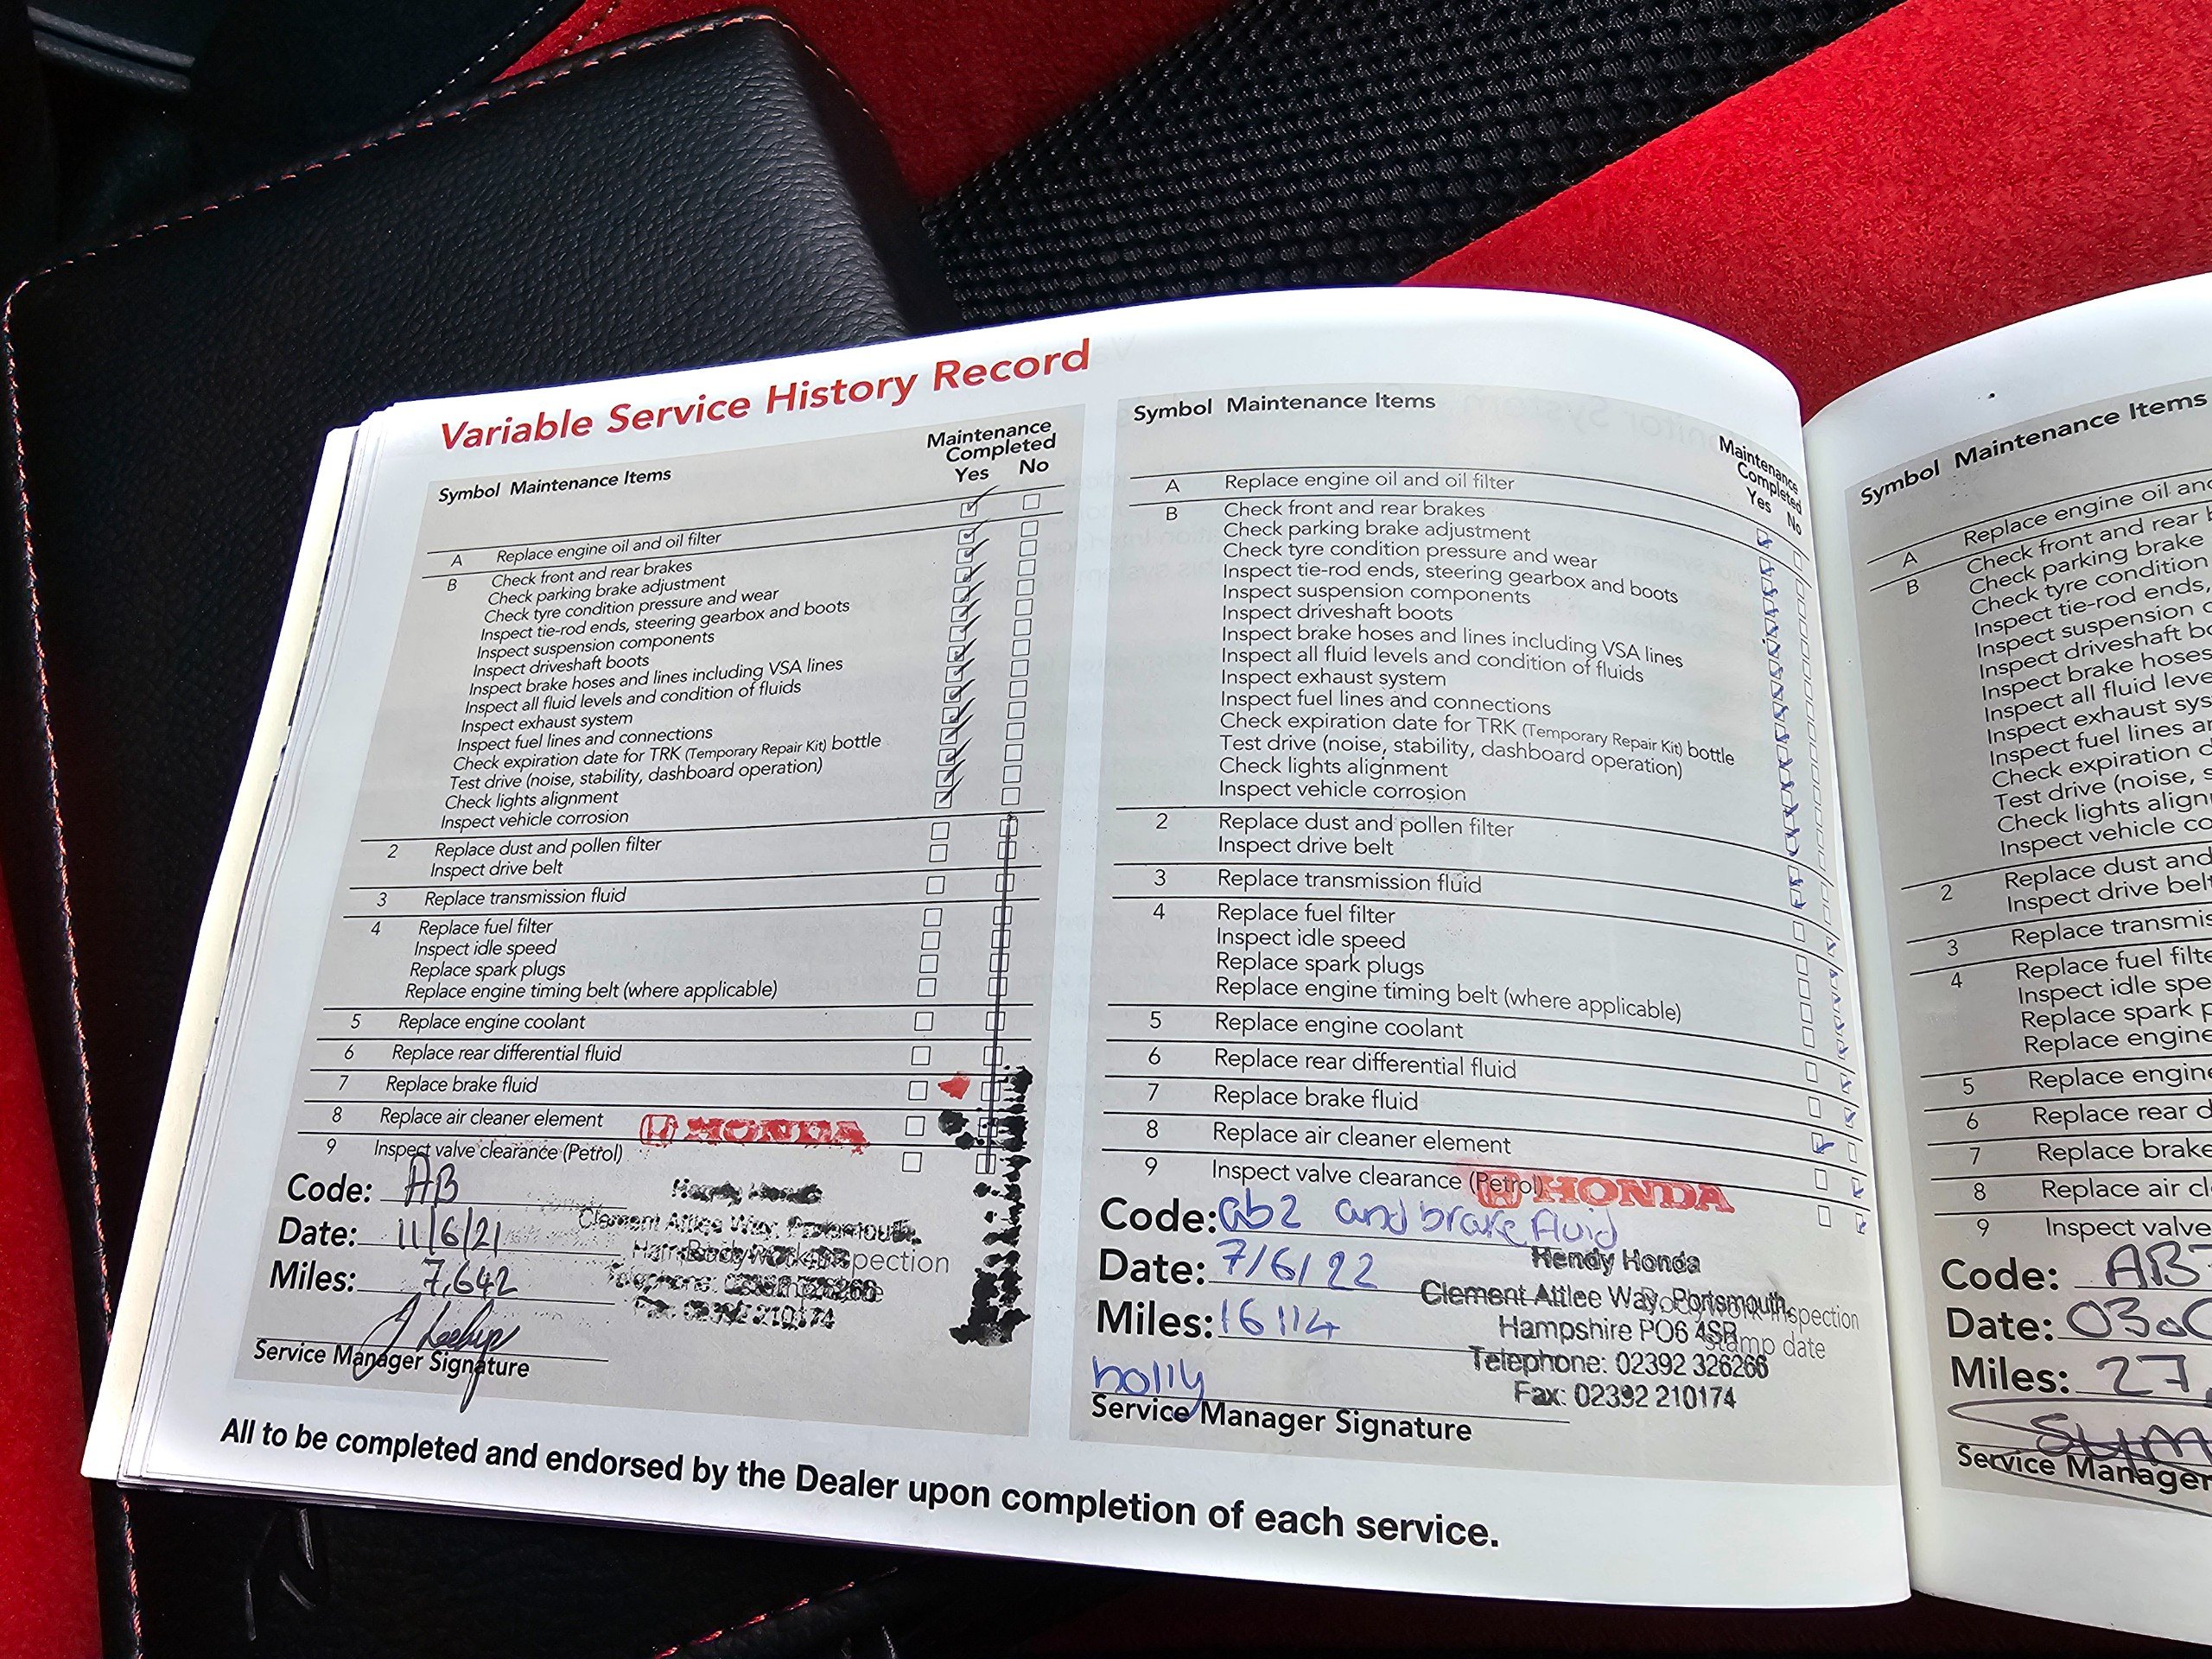 Variable Service History Record
Symbol Maintenance Items
Maintenance
Completed
Yes No
A Replace engine oil and oil filter
B Check front and rear brakes
Check parking brake adjustment
Check tyre condition pressure and wear
Inspect tie-rod ends, steering gearbox and boots
Inspect suspension components
Inspect driveshaft boots
Inspect brake hoses and lines including VSA lines
Inspect all fluid levels and condition of fluids
Inspect exhaust system
Inspect fuel lines and connections
Check expiration date for TRK (Temporary Repair Kit) bottle
Test drive (noise, stability, dashboard operation)
Check lights alignment
Inspect vehicle corrosion
2 Replace dust and pollen filter
Inspect drive belt
3 Replace transmission fluid
4 Replace fuel filter
Inspect idle speed
Replace spark plugs
Replace engine timing belt (where applicable)
5 Replace engine coolant
6 Replace rear differential fluid
7 Replace brake fluid
8 Replace air cleaner element
HONDA
9 Inspect valve clearance (Petrol)
Code: AB
Date: 11/6/21
Clement Attlee Way, Portsmouth,
Miles: 7,642
Telephone:
Fax: 02392 210174
Service Manager Signature
Symbol Maintenance Items
Maintenance
Completed
Yes No
A Replace engine oil and oil filter
B Check front and rear brakes
Check parking brake adjustment
Check tyre condition pressure and wear
Inspect tie-rod ends, steering gearbox and boots
Inspect suspension components
Inspect driveshaft boots
Inspect brake hoses and lines including VSA lines
Inspect all fluid levels and condition of fluids
Inspect exhaust system
Inspect fuel lines and connections
Check expiration date for TRK (Temporary Repair Kit) bottle
Test drive (noise, stability, dashboard operation)
Check lights alignment
Inspect vehicle corrosion
2 Replace dust and pollen filter
Inspect drive belt
3 Replace transmission fluid
4 Replace fuel filter
Inspect idle speed
Replace spark plugs
Replace engine timing belt (where applicable)
5 Replace engine coolant
6 Replace rear differential fluid
7 Replace brake fluid
8 Replace air cleaner element
9 Inspect valve clearance (Petrol)
HONDA
Code: ab2 and brake fluid
Hendy Honda
Date: 7/6/22
Clement Attlee Way, Portsmouth,
Hampshire PO6 4SR
stamp date
Miles: 16114
Telephone: 02392 326266
Fax: 02392 210174
holly
Service Manager Signature
All to be completed and endorsed by the Dealer upon completion of each service.
Symbol Maintenance Items
A Replace engine oil and
B Check front and rear
Check parking brake
Check tyre condition
Inspect tie-rod ends,
Inspect suspension
Inspect driveshaft
Inspect brake hoses
Inspect all fluid
Inspect exhaust
Inspect fuel lines
Check expiration
Test drive (noise,
Check lights
Inspect vehicle
2 Replace dust and
Inspect drive belt
3 Replace
4 Replace fuel
Inspect idle
Replace spark
Replace engine
5 Replace
6 Replace rear
7 Replace brake
8 Replace air
9 Inspect valve
Code:
Date:
Miles: 27,
Service Manager